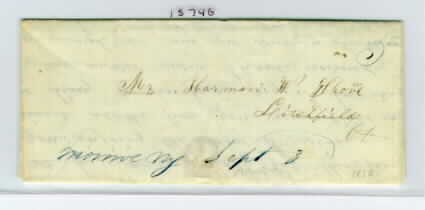 15746
Mr. Harmon W. Shove
Litchfield
Ct
Monroe NY Sept 3